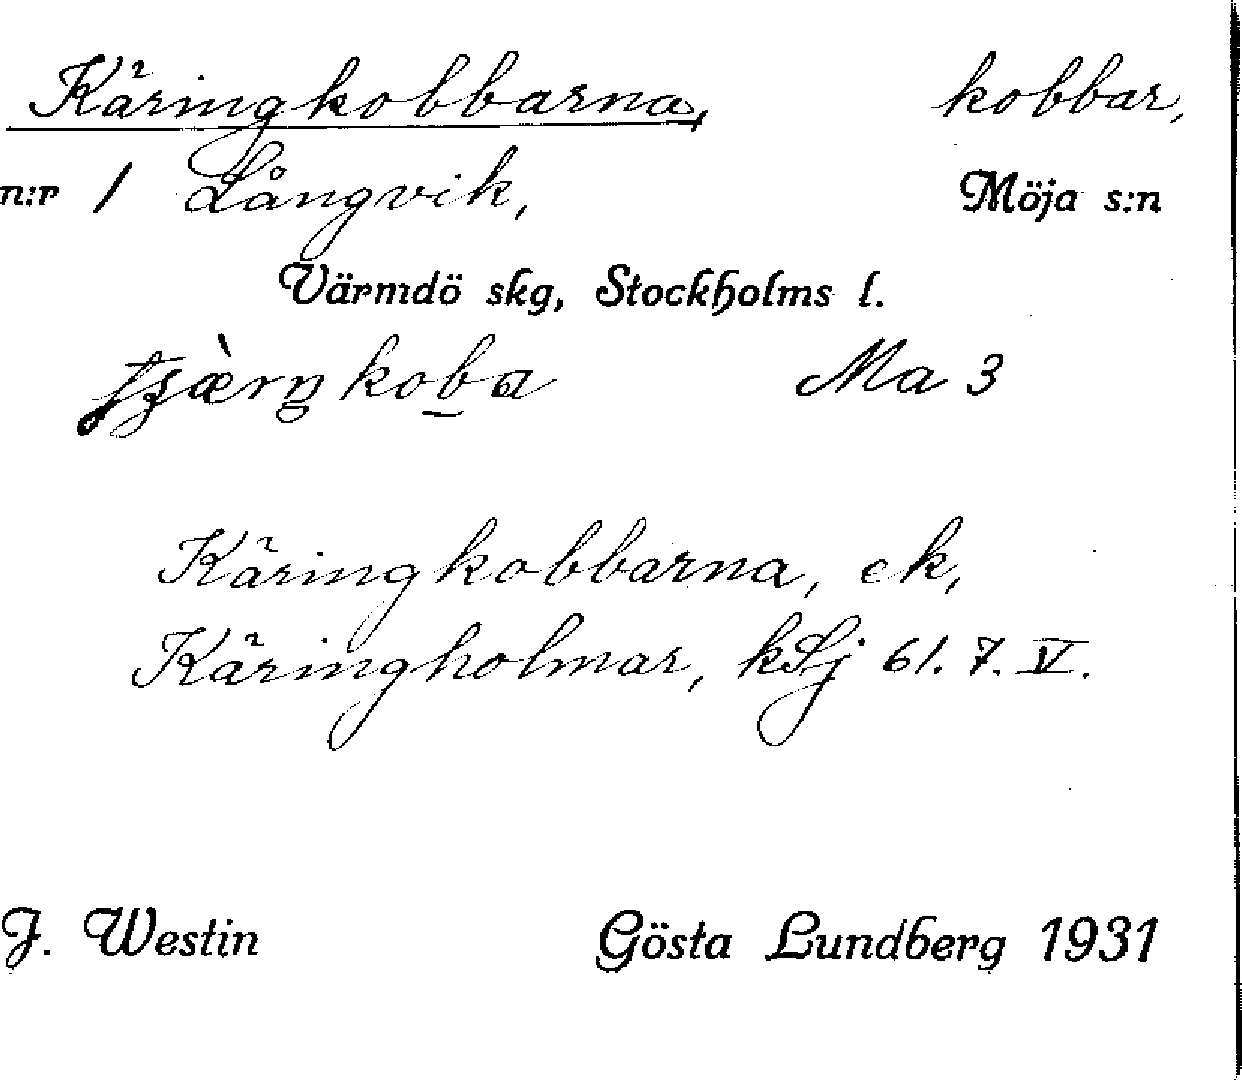 Käringkobbarna, kobbar,
n:r 1 Långvik, Möja s:n
Värmdö skg, Stockholms l.
Ma 3
Käringkobbarna, ek,
Käringholmar, kSj 61. 7. IV.
J. Westin Gösta Lundberg 1931